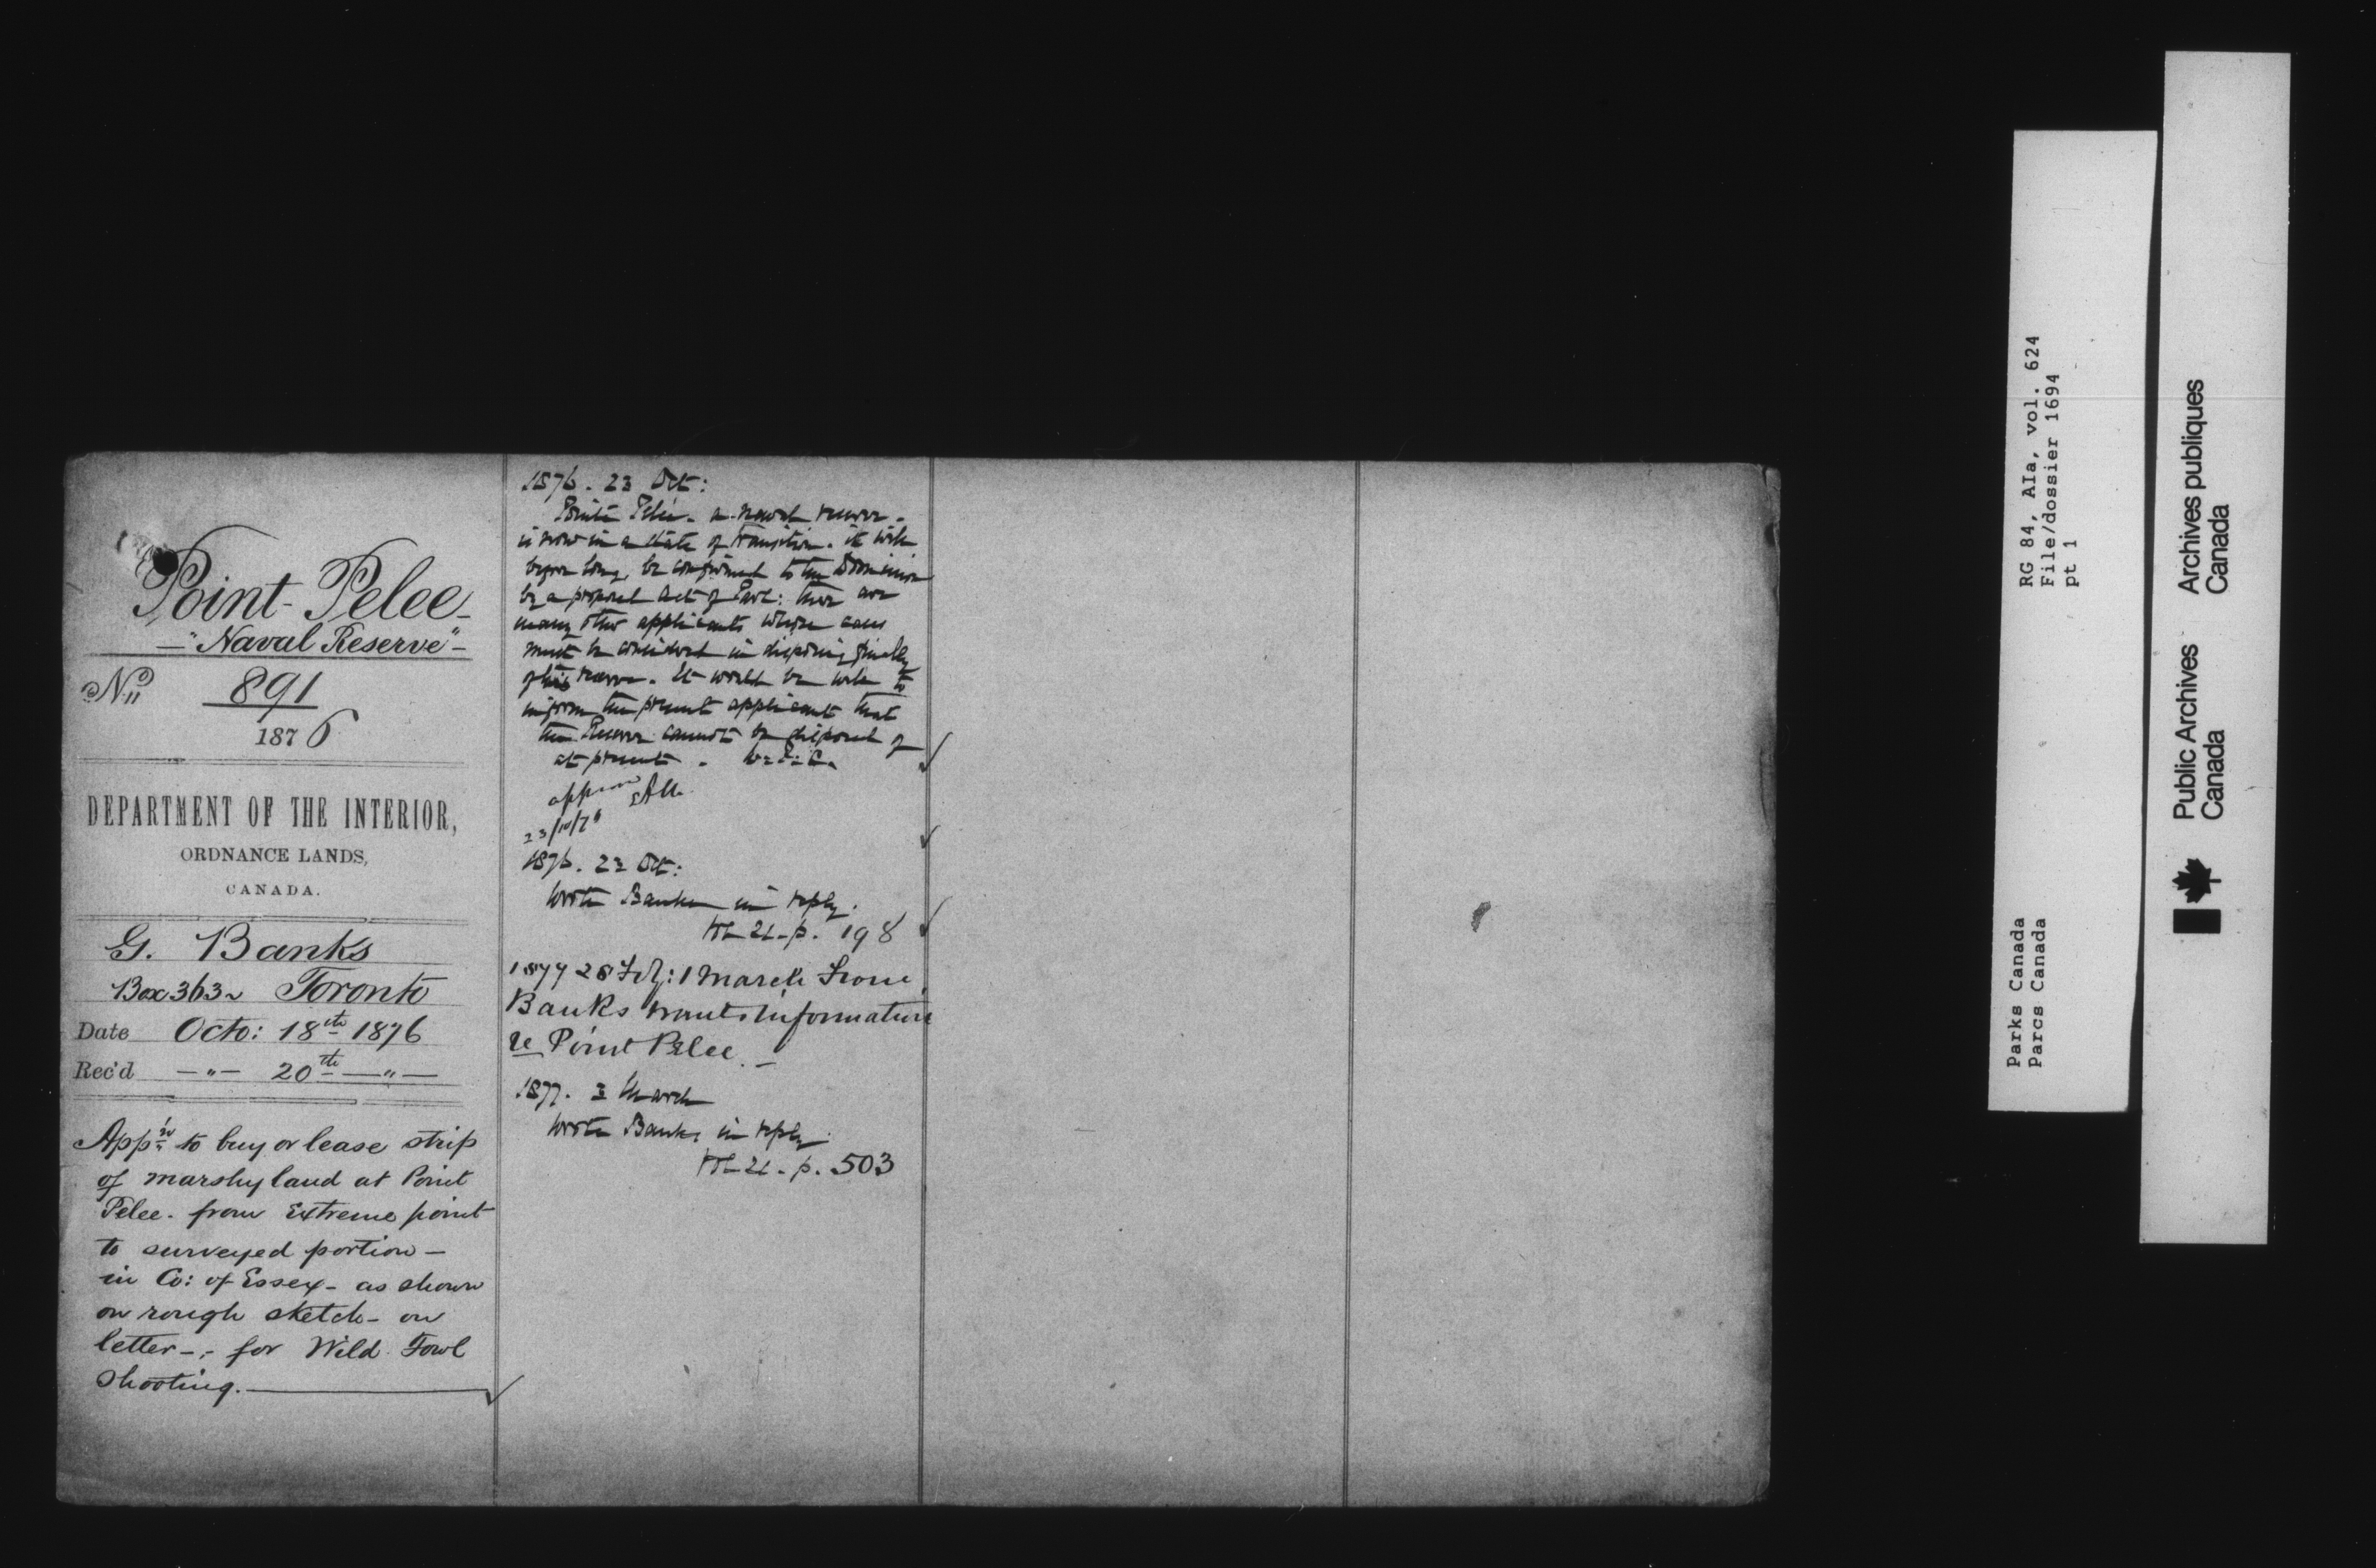 Point Pelee
"Naval Reserve"
No. 891
1876
DEPARTMENT OF THE INTERIOR,
ORDNANCE LANDS,
CANADA.
G. Banks
Box 363 Toronto
Date Octo: 18th 1876
Rec'd —"— 20th —"—
App'n to buy or lease strip
of marshy land at Point
Pelee. from Extreme point
to surveyed portion —
in Co: of Essex - as shown
on rough sketch - on
letter -.- for Wild Fowl
Shooting.
1876. 23 Oct:
Pointe Pelée - a naval reserve -
is now in a state of transition. it will
before long, be confirmed to the Dominion
by a proposed Act of Parl: there are
many other applicants whose cases
must be considered in disposing finally
of this reserve. It would be well to
inform the present applicant that
the Reserve cannot be disposed of
at present.
23/10/76
1876. 23 Oct:
Wrote Banks in reply.
21 - p. 198
1877 28 Feb: 1 March From
Banks wants information
re Point Pelee. —
1877. 3 March
Wrote Banks in reply
21 - p. 503
RG 84, AIa, vol. 624
File/dossier 1694
pt 1
Parks Canada
Parcs Canada
Public Archives
Canada
Archives publiques
Canada